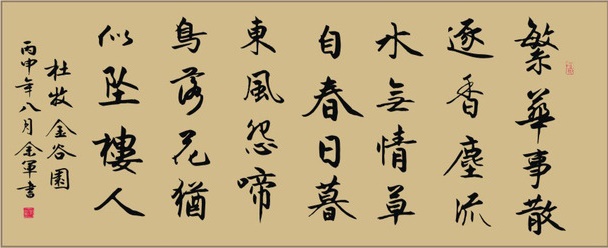 繁華事散
逐香塵流
水無情草
自春日暮
東風怨啼
鳥落花猶
似坠樓人
杜牧金谷園
丙申年八月余軍書